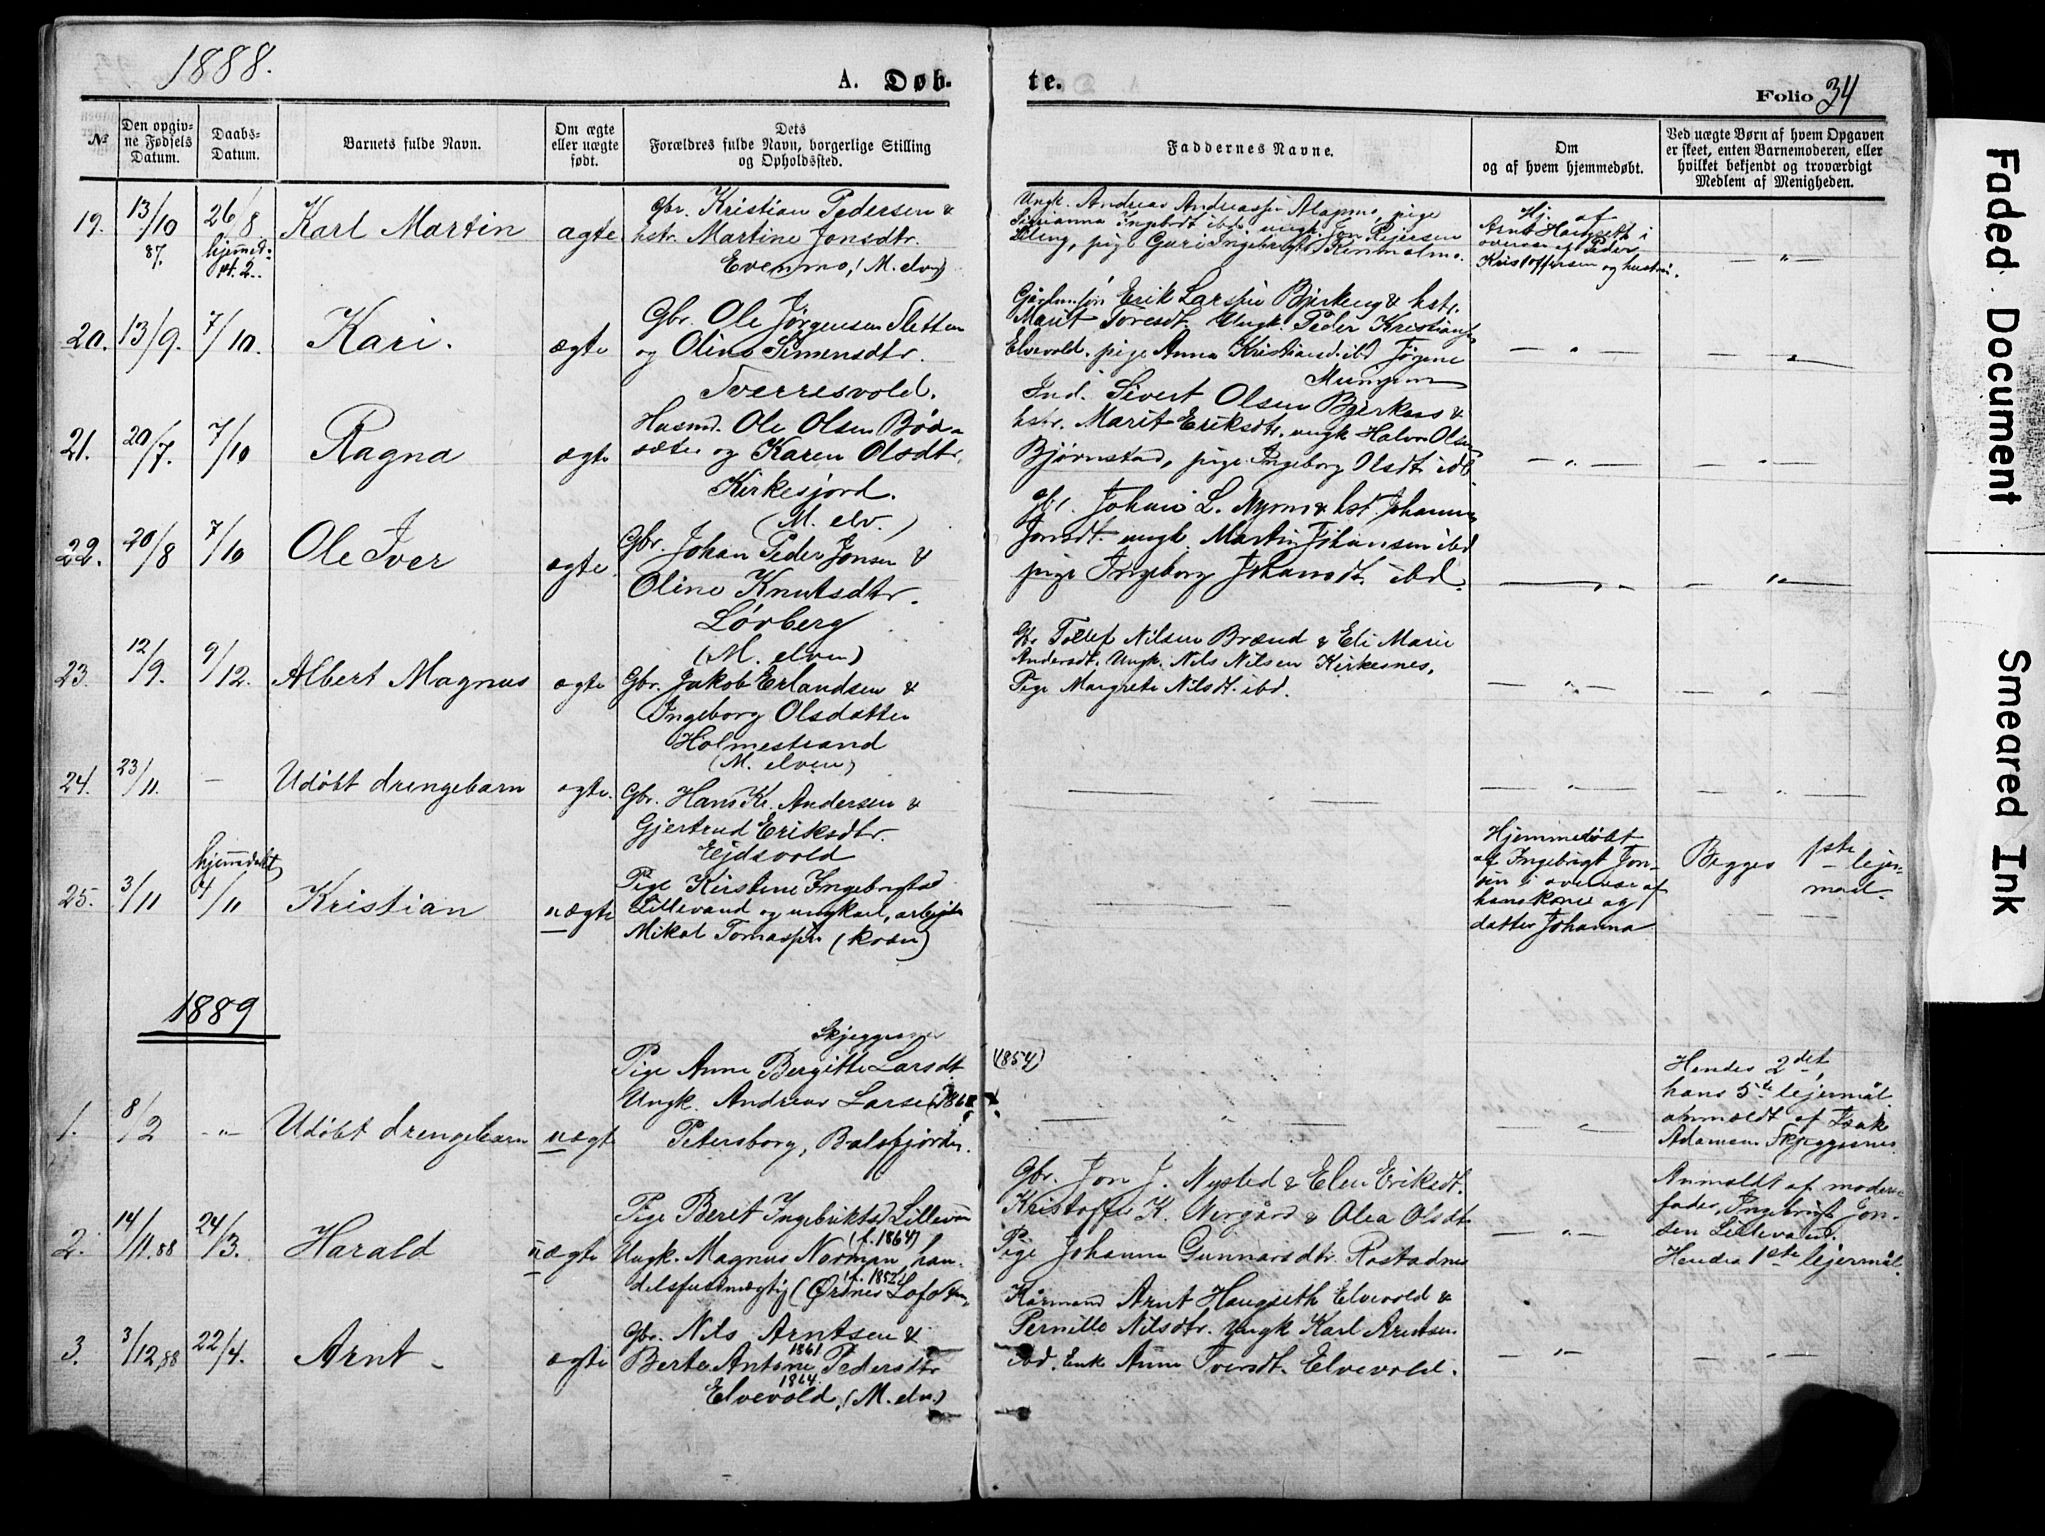 1888.
A. Døb-
te.
Folio 34
№
Den opgiv-
ne Fødsels
Datum.
Daabs-
Datum.
Barnets fulde Navn.
Om ægte
eller uægte
født.
Dets
Forældres fulde Navn, borgerlige Stilling
og Opholdssted.
Faddernes Navne.
Om
og af hvem hjemmedøbt.
Ved uægte Børn af hvem Opgaven
er skeet, enten Barnemoderen, eller
hvilket bekjendt og troværdigt
Medlem af Menigheden.
19.
13/10
87.
26/8
hjemmed.
Karl Martin
ægte
Gbr. Kristian Pedersen &
hstr. Martine Jonsdtr.
Evenmo, (M. elv)
Ungk. Andreas pige
ibd. ungk. Jon
pige Guri
Hj. af
Arnt Haugseth i
overvær af Peder
Kristoffersen og hustru.
20.
13/9.
7/10.
Kari.
ægte
Gbr. Ole Jørgensen Sletten
og Oline Simensdtr.
Tverresvold.
Erik Larsen Bjerkeng & hstr.
Marit Toresdt. Ungk. Peder Kristians
Elvevold. pige Anna Kristiansd. ibd Jørgine
21.
20/7.
7/10
Ragna
ægte
Husmd. Ole Olsen Bød-
sæter og Karen Olsdtr.
Kirkesjord.
(M. elv.)
Ind. Sivert Olsen Bjerkeng &
hstr. Marit Eriksdtr. ungk Halvor Olsen
Bjørnstad, pige Ingeborg Olsdt ibd
22.
20/8
7/10
Ole Iver
ægte
Gbr. Johan Peder Jonsen &
Oline Knutsdtr.
Lørberg
(M. elven)
Gbr. Johan L. Nymo & hst. Johanna
Jonsdt ungk. Martin Johansen ibd
pige Ingeborg Johansdt. ibd.
23.
12/9.
9/12.
Albert Magnus
ægte
Gbr. Jakob Erlandsen &
Ingeborg Olsdatter
Holmestrand
(M. elven)
Gbr Tollef Nilsen Brænd & Eli Marie
Andersdt. Ungk. Nils Nilsen Kirkesnes,
Pige Margrete Nilsdt. ibd.
24.
23/11.
Udøbt drengebarn
ægte.
Gbr. Hans Kr. Andersen &
Gjertrud Eriksdtr.
Eidsvold
25.
3/11
hjemmedøbt
4/11
Kristian
uægte
Pige Kirstine Ingebrigtsd
Lillevand og ungkarl, arbeider
Mikal Tomassen (Kroken)
Hjemmedøbt
af Ingebrigt Jon-
sen i overvær af
hans kone og
datter Johanna
Begges 1ste lejer-
maal.
1889
1.
8/2
Udøbt drengebarn
uægt
Skjeggesnes
Pige Anne Bergitte Larsdt (1854)
Ungk. Andreas Larsen
Petersborg, Balsfjorden.
Hendes 2det,
hans 5te lejermål
anmældt af Isak
Adamsen Skjeggesnes
2.
14/11.88
24/3.
Harald
uægte
Pige Beret Ingebriktsd Lillevan
(f. 1864)
Ungk. Magnus Norman, han-
(f. 1852)
delsfuldmægtig (Ørsnes Lofoten,
Gbr. Jon J. Nysted & Elen Eriksdt.
Kristoffer K. Nergård & Olea Olsdt
Pige Johanna Gunnarsdtr. Rostadnes
Anmeldt af moder-
fader, Ingebrigt Jon-
sen Lillevand.
Hendes 1ste lejermål.
3.
3/12,88
22/4.
Arnt
ægte
Gbr. Nils Arntsen &
1861
Berte Antone Pedersdtr
1864.
Elvevold, (M. elv)
Kårmand Arnt Haugseth Elvevold &
Pernille Nilsdtr. ungk Karl Arntsen
ibd, Enke Anne Iversdt. Elvevold.
Faded Document
Smeared Ink